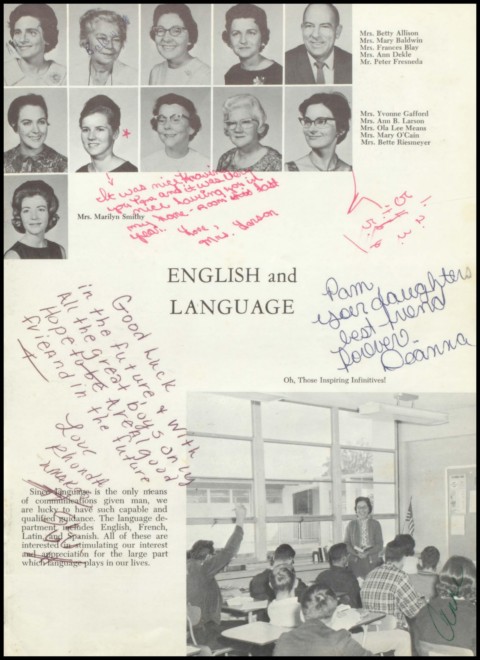 Mrs. Betty Allison
Mrs. Mary Baldwin
Mrs. Frances Blay
Mrs. Ann Dekle
Mr. Peter Fresneda
Mrs. Yvonne Gafford
Mrs. Ann B. Larson
Mrs. Ola Lee Means
Mrs. Mary O'Cain
Mrs. Bette Rienmeyer
Mrs. Marilyn Smithy
It was nice having
you Pam and it was very
nice having you in
my home-room
year. Love,
Mrs. Larson
ENGLISH and
LANGUAGE
Pam
your daughters
best friend
forever-
Deanna
Good Luck
in the future & with
All the great boys only
Hope to be A real good
friend in the future
Love
Rhonda
Oh, Those Inspiring Infinitives!
Since language is the only means
of communications given man, we
are lucky to have such capable and
qualified guidance. The language de-
partment includes English, French,
Latin, and Spanish. All of these are
interested in stimulating our interest
and appreciation for the large part
which language plays in our lives.